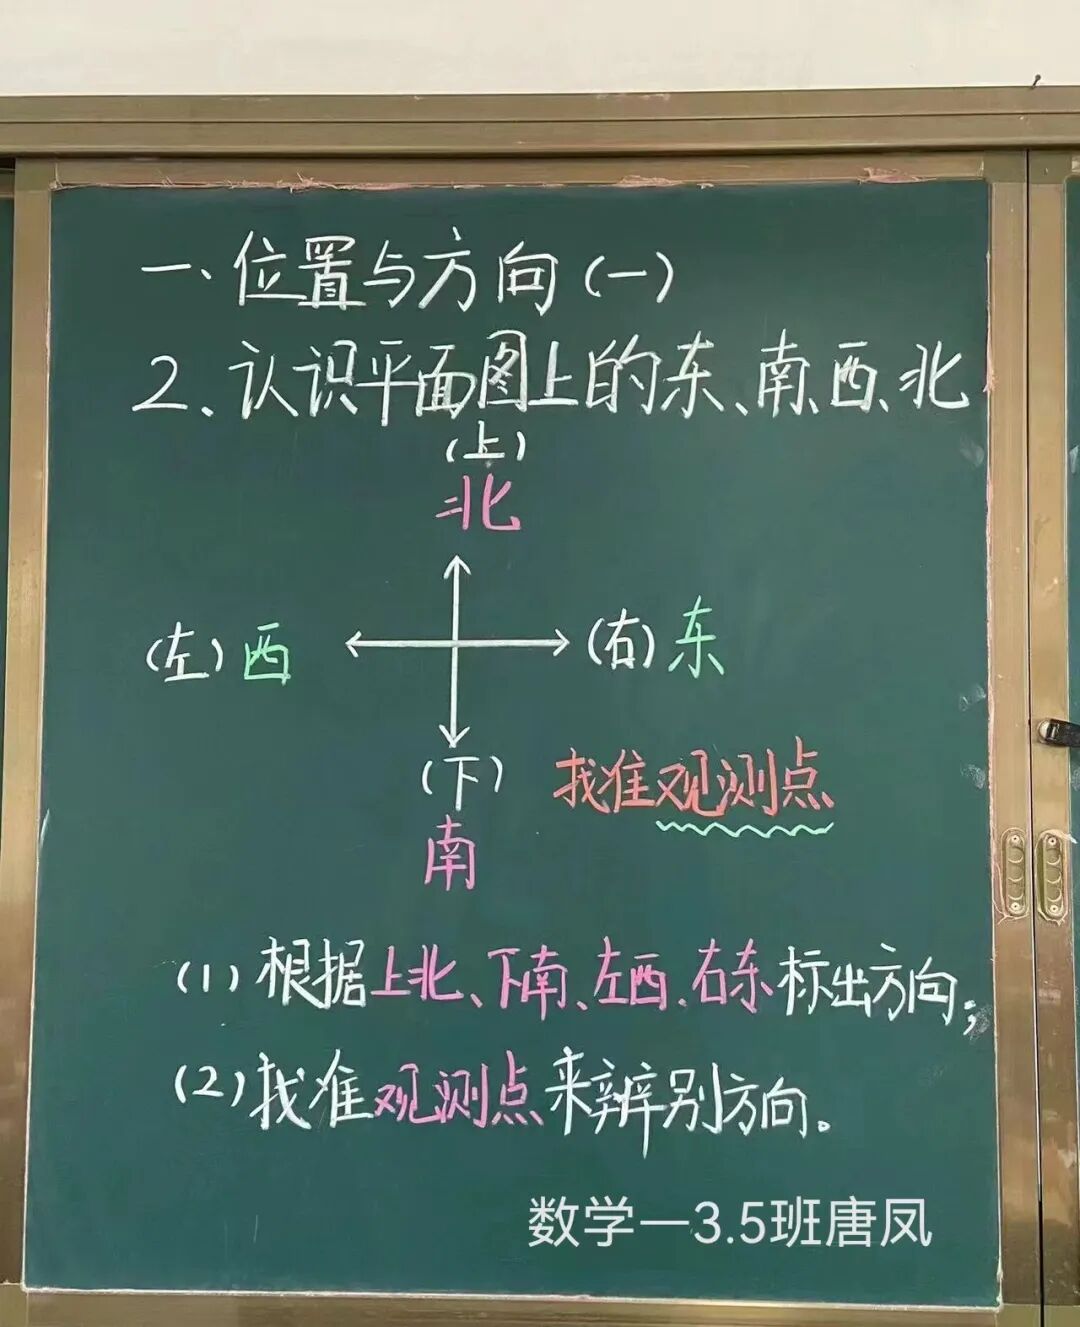 一、位置与方向(一)
2、认识平面图上的东、南、西、北
(上)
北
(左)西
(右)东
(下)
南
找准观测点
(1)根据上北、下南、左西、右东标出方向;
(2)找准观测点来辨别方向。
数学一3.5班唐凤